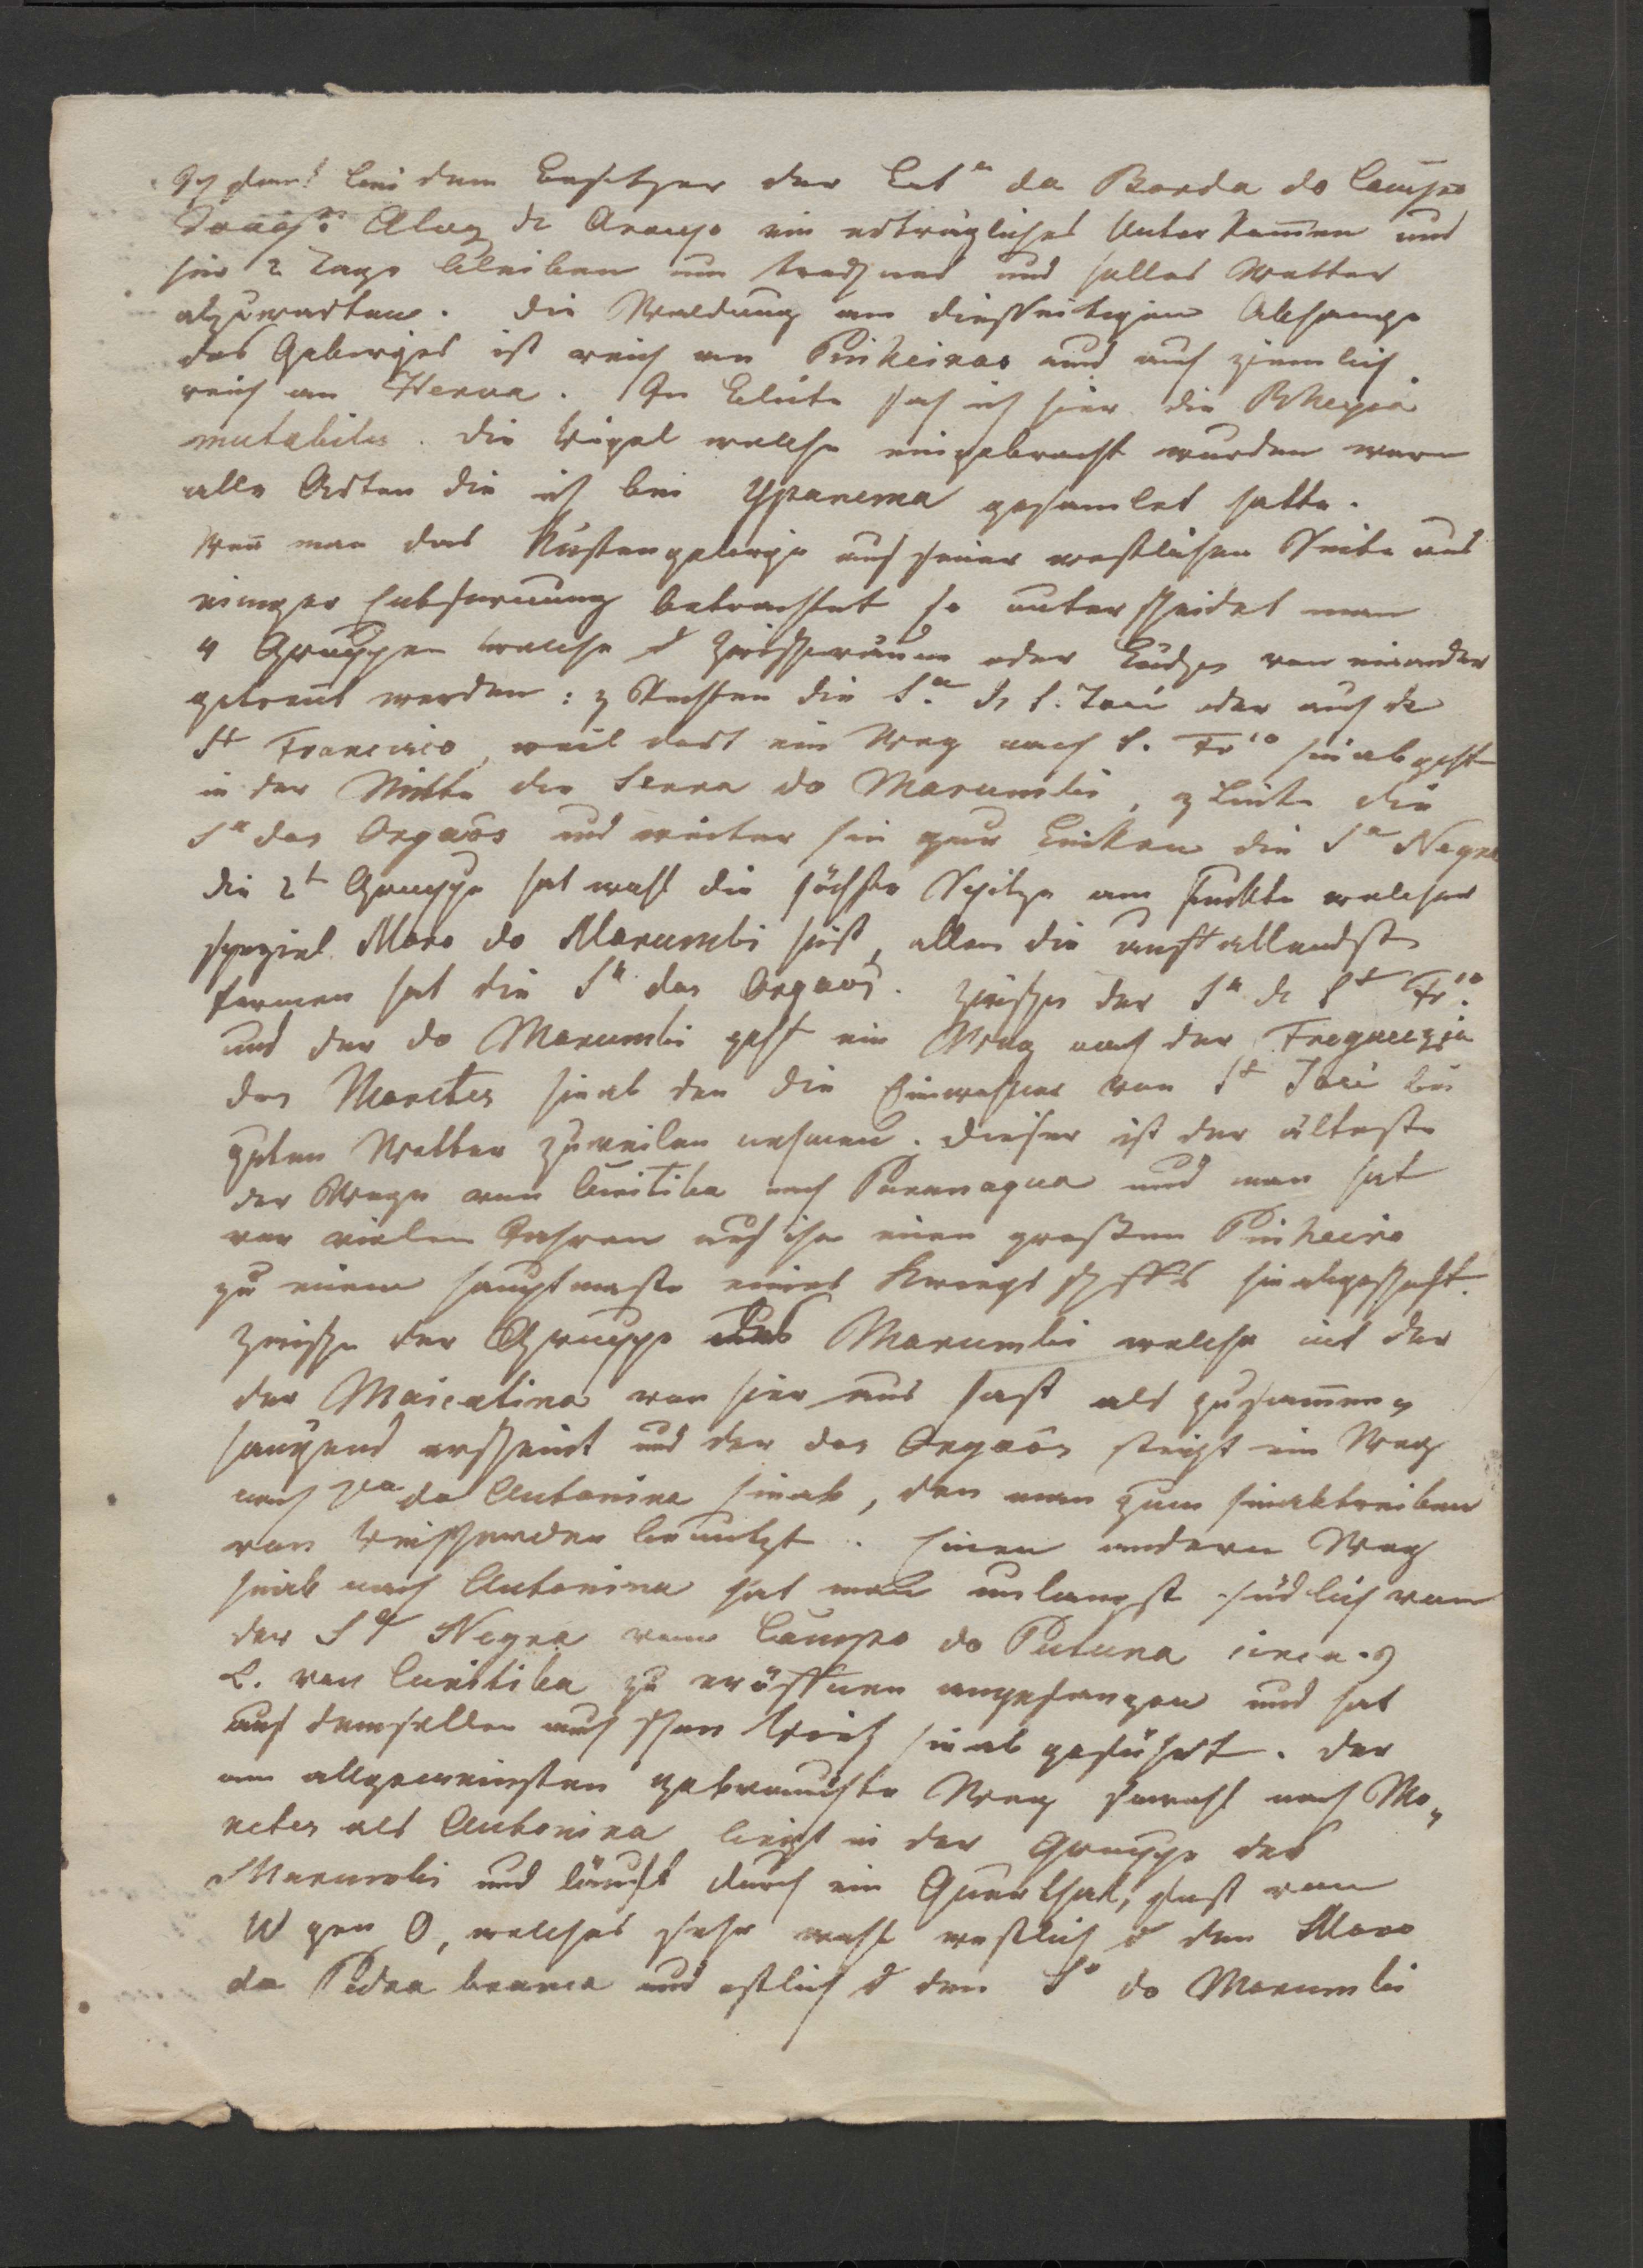 Ich fand bei dem Besitzer der Est.ª da Borda do Campo
Alvz de Araujo ein erträgliches Unterkom̅en und
hier 2 Tage bleiben um trocknes und helles Wetter
abzuwarten. Die Waldung am diesseitigen Abhange
des Gebirges ist reich an Pinheiros und auch ziemlich
reich an Herva. In Blüte sah ich hier die Rhexia
mutabilis. Die Vögel welche eingebracht wurden waren
alle Arten die ich bei Ypanema gesam̅let hatte.
Wen̅ man das Küstengebirge auf seiner westlichen Seite aus
einiger Entfernung betrachtet so unterscheidet man
4 Gruppen welche d Zwischenräume oder von einander
getrent werden: z Rechten die S.ª de S. José oder auch de
St Francisco, weil dort ein Weg nach S. Frco hinabgeht
in der Mitte die Serra do Marumbi, z Linke die
Sª dos Orgaõs und weiter hin zur Linken die Sª Negra
die 2t Gruppe hat wohl die höchste Spitze am Punkte welcher
speziel Moro do Marumbi heist, allein die auffallendste
Formen hat die Sª dos Orgaõs. Zwischen der Sª de St Frco
und der do Marumbi geht ein Weg nach der Freguezia
dos Morretes hinab den die Einwohner von St José bei
guten Wetter zuweilen nehmen. Dieser ist der älteste
der Wege von Curitiba nach Paranagua und man hat
vor vielen Jahren auf ihn einen großen Pinheiro
zu einem Hauptmaste eines Kriegsschiffs hinabgeschaft.
Zwischen der Gruppe des Marumbi welche mit der
der Maicatina von hier aus fast als zusam̅en„
hangend erscheint und der dos Orgaõs steigt ein Weg
nach Vla da Antonina hinab, den man zum hinabtreiben
von benutzt. Einen andern Weg
hinab nach Antonina hat man unlangst südlich von
der Sª Negra vom Campo do Putuna circa 9
L. von Curitiba zu eröffnen angefangen und hat
auf demselben auch schon Vieh hinab geführt. Der
am allgemeinsten gebrauchte Weg sowohl nach Mo„
retes als Antonina liegt in der Gruppe des
Marumbi und läuft durch ein Querthal, fast von
W gen O, welches sehr wohl westlich d den Moro
da Pedra branca und östlich d den Sª do Marumbi